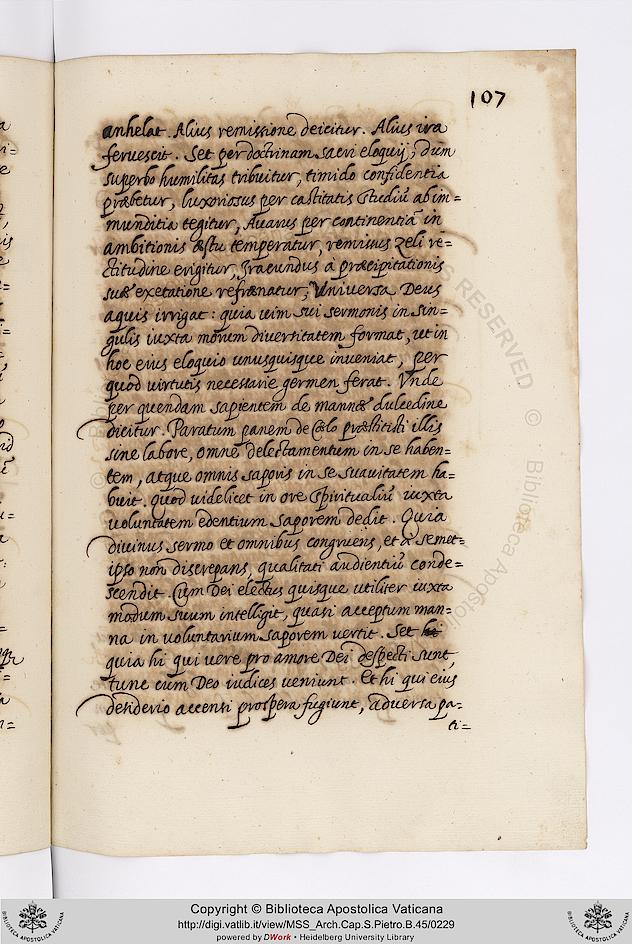 107
anhelat. Alius remissione deicitur. Alius ira
feruescit. Set per doctrinam sacri eloquij, dum
superbo humilitas tribuitur, timido confidentia
præbetur, luxoriosus per castitatis studiũ ab im=
munditia tegitur, Auarus per continentiã in
ambitionis æstu temperatur, remissus zeli re=
ctitudine erigitur, Iracundus à præcipitationis
suæ exetatione refrænatur; Vniversa Deus
aquis irrigat: quia uim sui sermonis in sin=
gulis iuxta morum diuertitatem format, ut in
hoc eius eloquio unusquisque inueniat, per
quod uirtutis necessarie germen ferat. Vnde
per quendam sapientem de mannæ dulcedine
dicitur. Paratum panem de Cœlo præstitisti illis
sine labore, omne delectamentum in se haben=
tem, atque omnis saporis in se suauitatem ha=
buit. quod uidelicet in ore spiritualiũ iuxta
uoluntatem edentium saporem dedit. Quia
diuinus sermo et omnibus congruens, et à semet=
ipso non discrepans, qualitati audientiũ conde=
scendit. Cum Dei electus quisque utiliter iuxta
modum suum intelligit, quasi acceptum man=
na in uoluntarium saporem uertit. Set
quia hi qui uere pro amore Dei despecti sunt,
tunc cum Deo iudices ueniunt. Et hi qui eius
desiderio accensi prospera fugiunt, aduersa pa=
ti=
RESERVED © Biblioteca Apostoli
Copyright © Biblioteca Apostolica Vaticana
http://digi.vatlib.it/view/MSS_Arch.Cap.S.Pietro.B.45/0229
powered by DWork • Heidelberg University Library